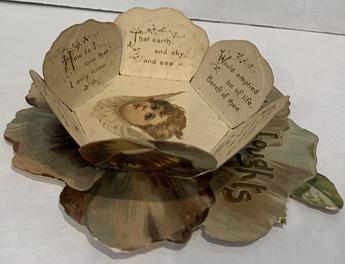 How do I
love thee?
I only know
That earth
and sky
and sea
Would emptied
be of life,
Bereft of thee.
oughts